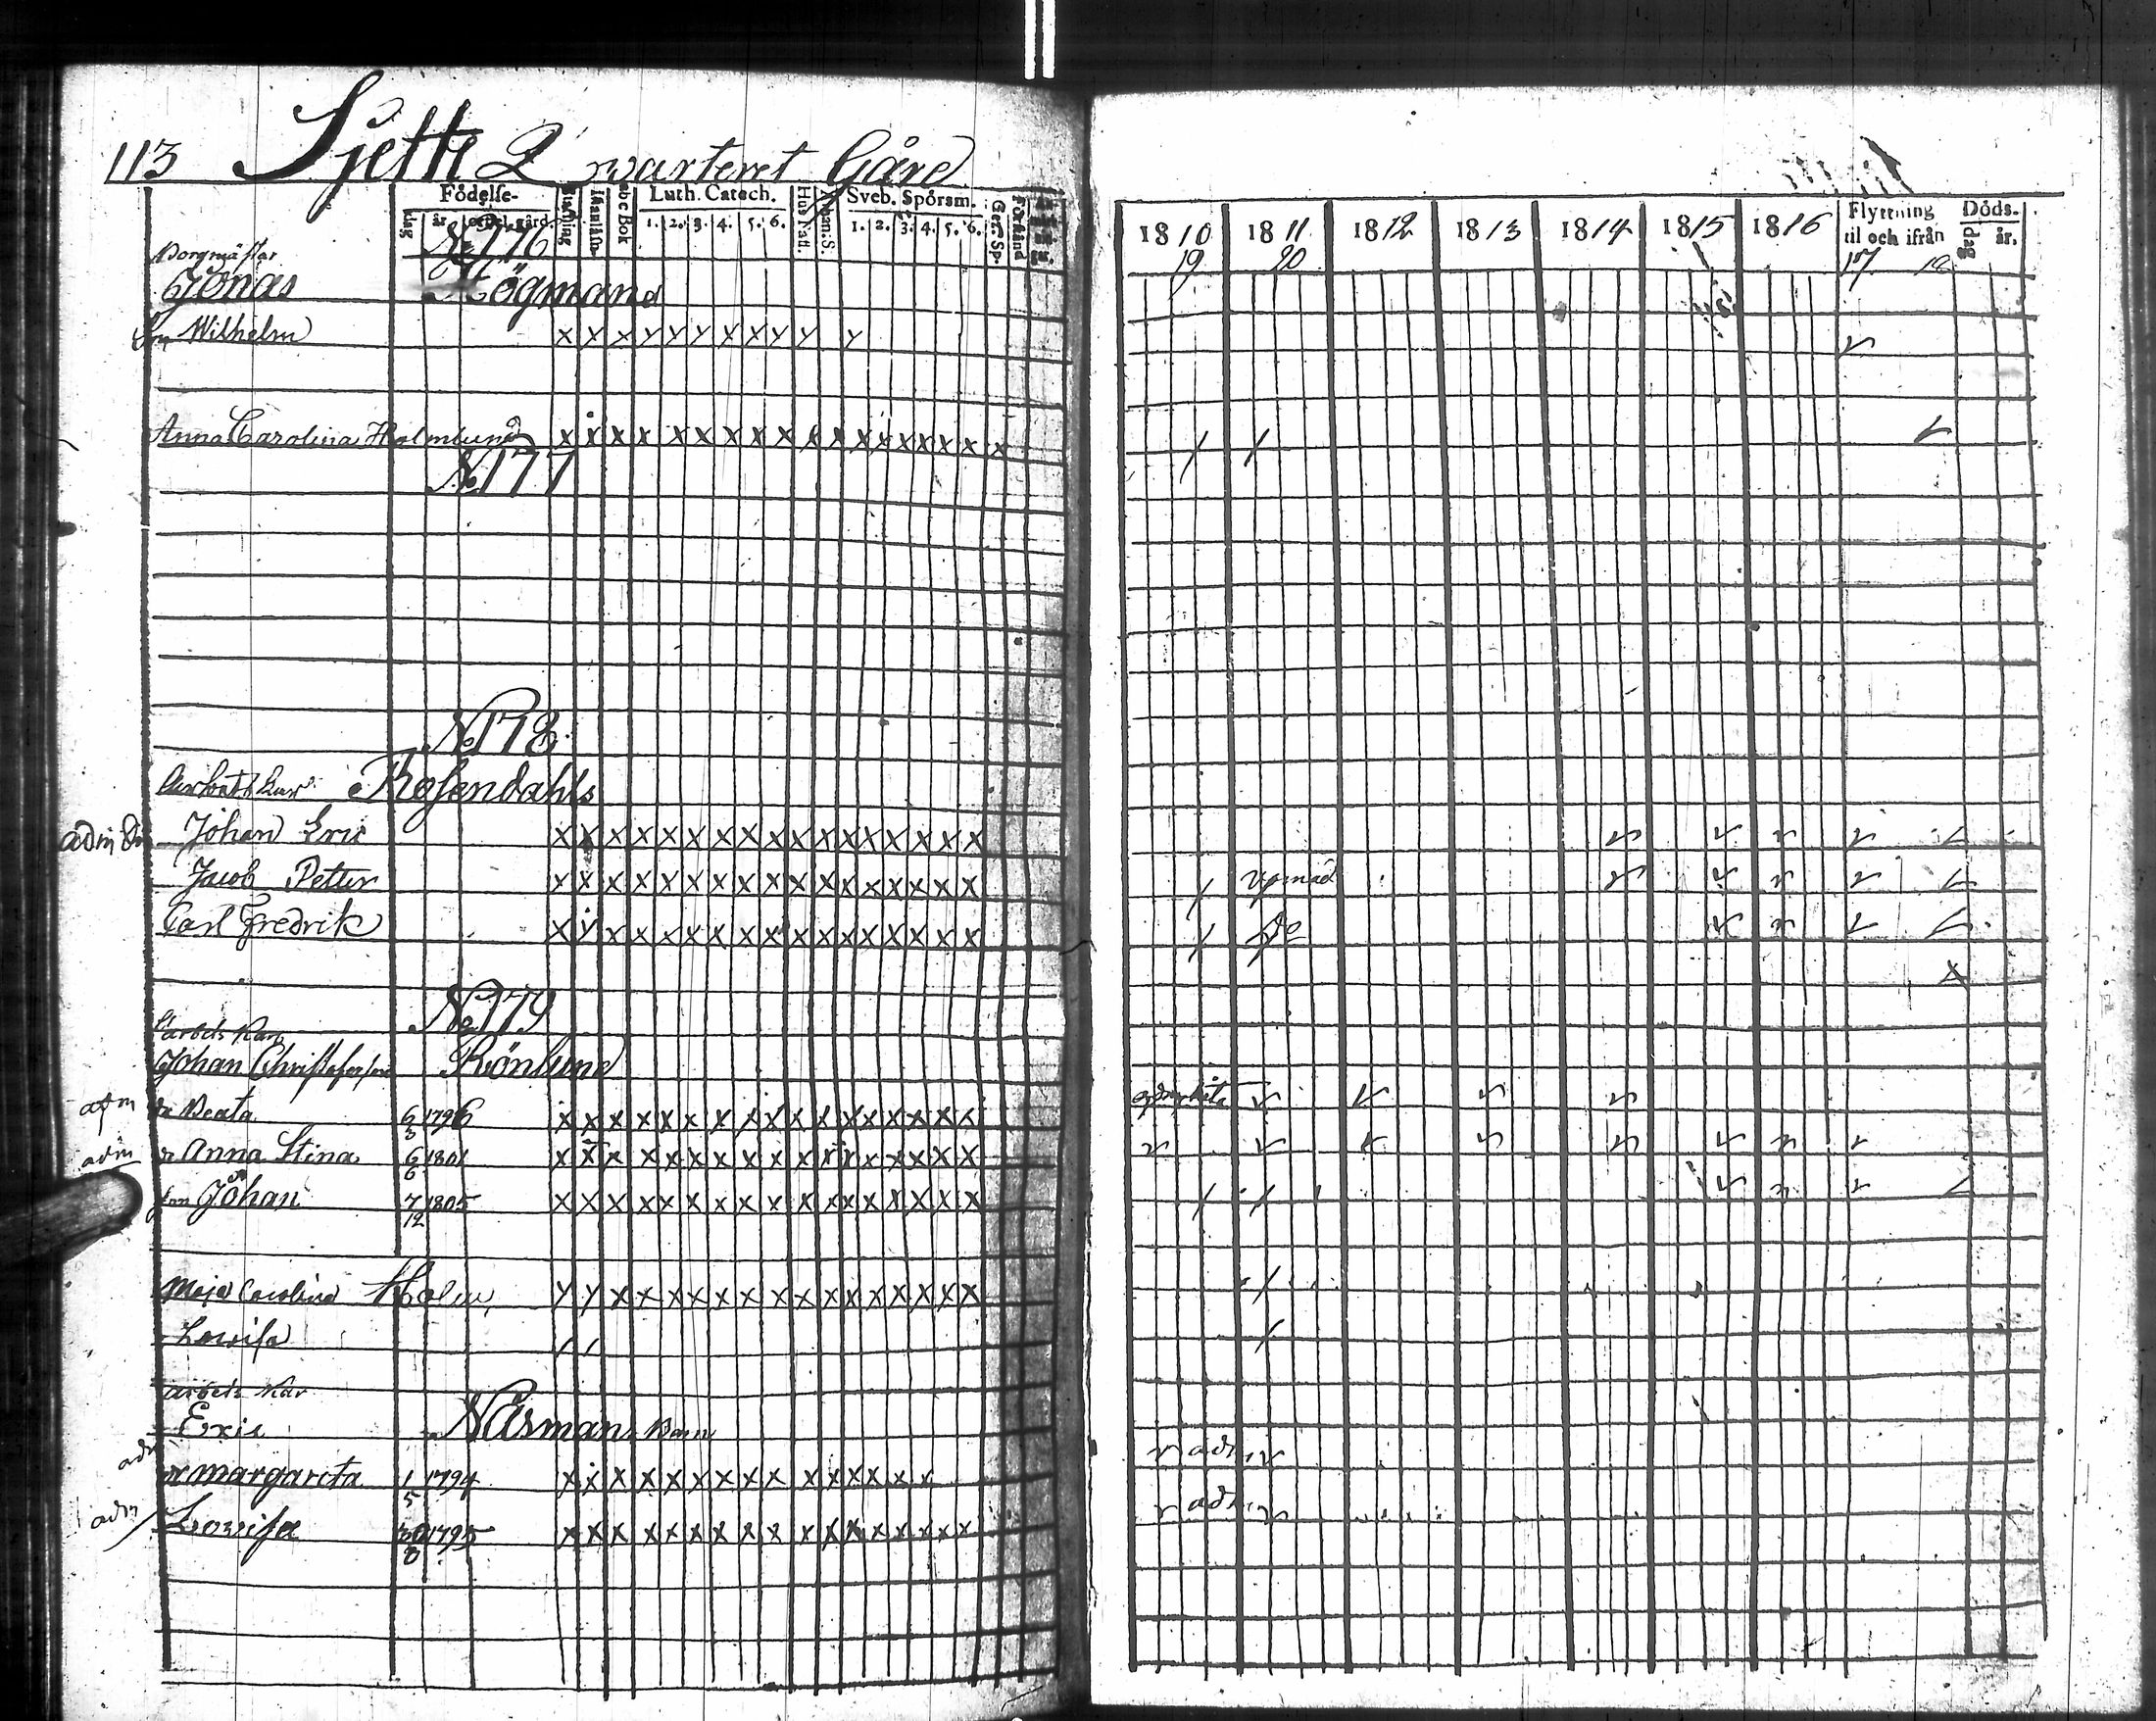 113 Sjette Qwarteret Gård
Födelse-
dag år
Stafning Innanläsn. abc Bok Luth. Catech. Hus Tafl. Sveb. Spörsm. Förstånd
1. 2. 3. 4. 5. 6. 1. 2. 3. 4. 5. 6.
No 176
Borgmästar
Jonas Högmans
son Wilhelm x x x x x x x x x x x
Anna Carolina Holmlund x x x x x x x x x x x x x x x x x x
No 177
No 178
Rosendahls
adm Johan Eric x x x x x x x x x x x x x x x x x
Jacob Petter x x x x x x x x x x x x x x x x x
Carl Fredrik x x x x x x x x x x x x x x x x x
No 179
arbets Kar
Johan Christoferson Rönlund
adm Beata 6/3 1796 x x x x x x x x x x x x x x x x x
adm Anna Stina 6/6 1801 x x x x x x x x x x x x x x x x x
son Johan 7/12 1805 x x x x x x x x x x x x x x x x x
Maja Carolina Holm x x x x x x x x x x x x x x x x x
Lovisa
arbets Kar
Eric Näsmans Barn
adm Margareta 1/5 1794 x x x x x x x x x x x x x x x
adm Lovisa 1795 x x x x x x x x x x x x x x x x x
1810 1811 1812 1813 1814 1815 1816 Flyttning til och ifrån Döds-
dag år.
19 20 17 18
upmåd
Do
adm
adm